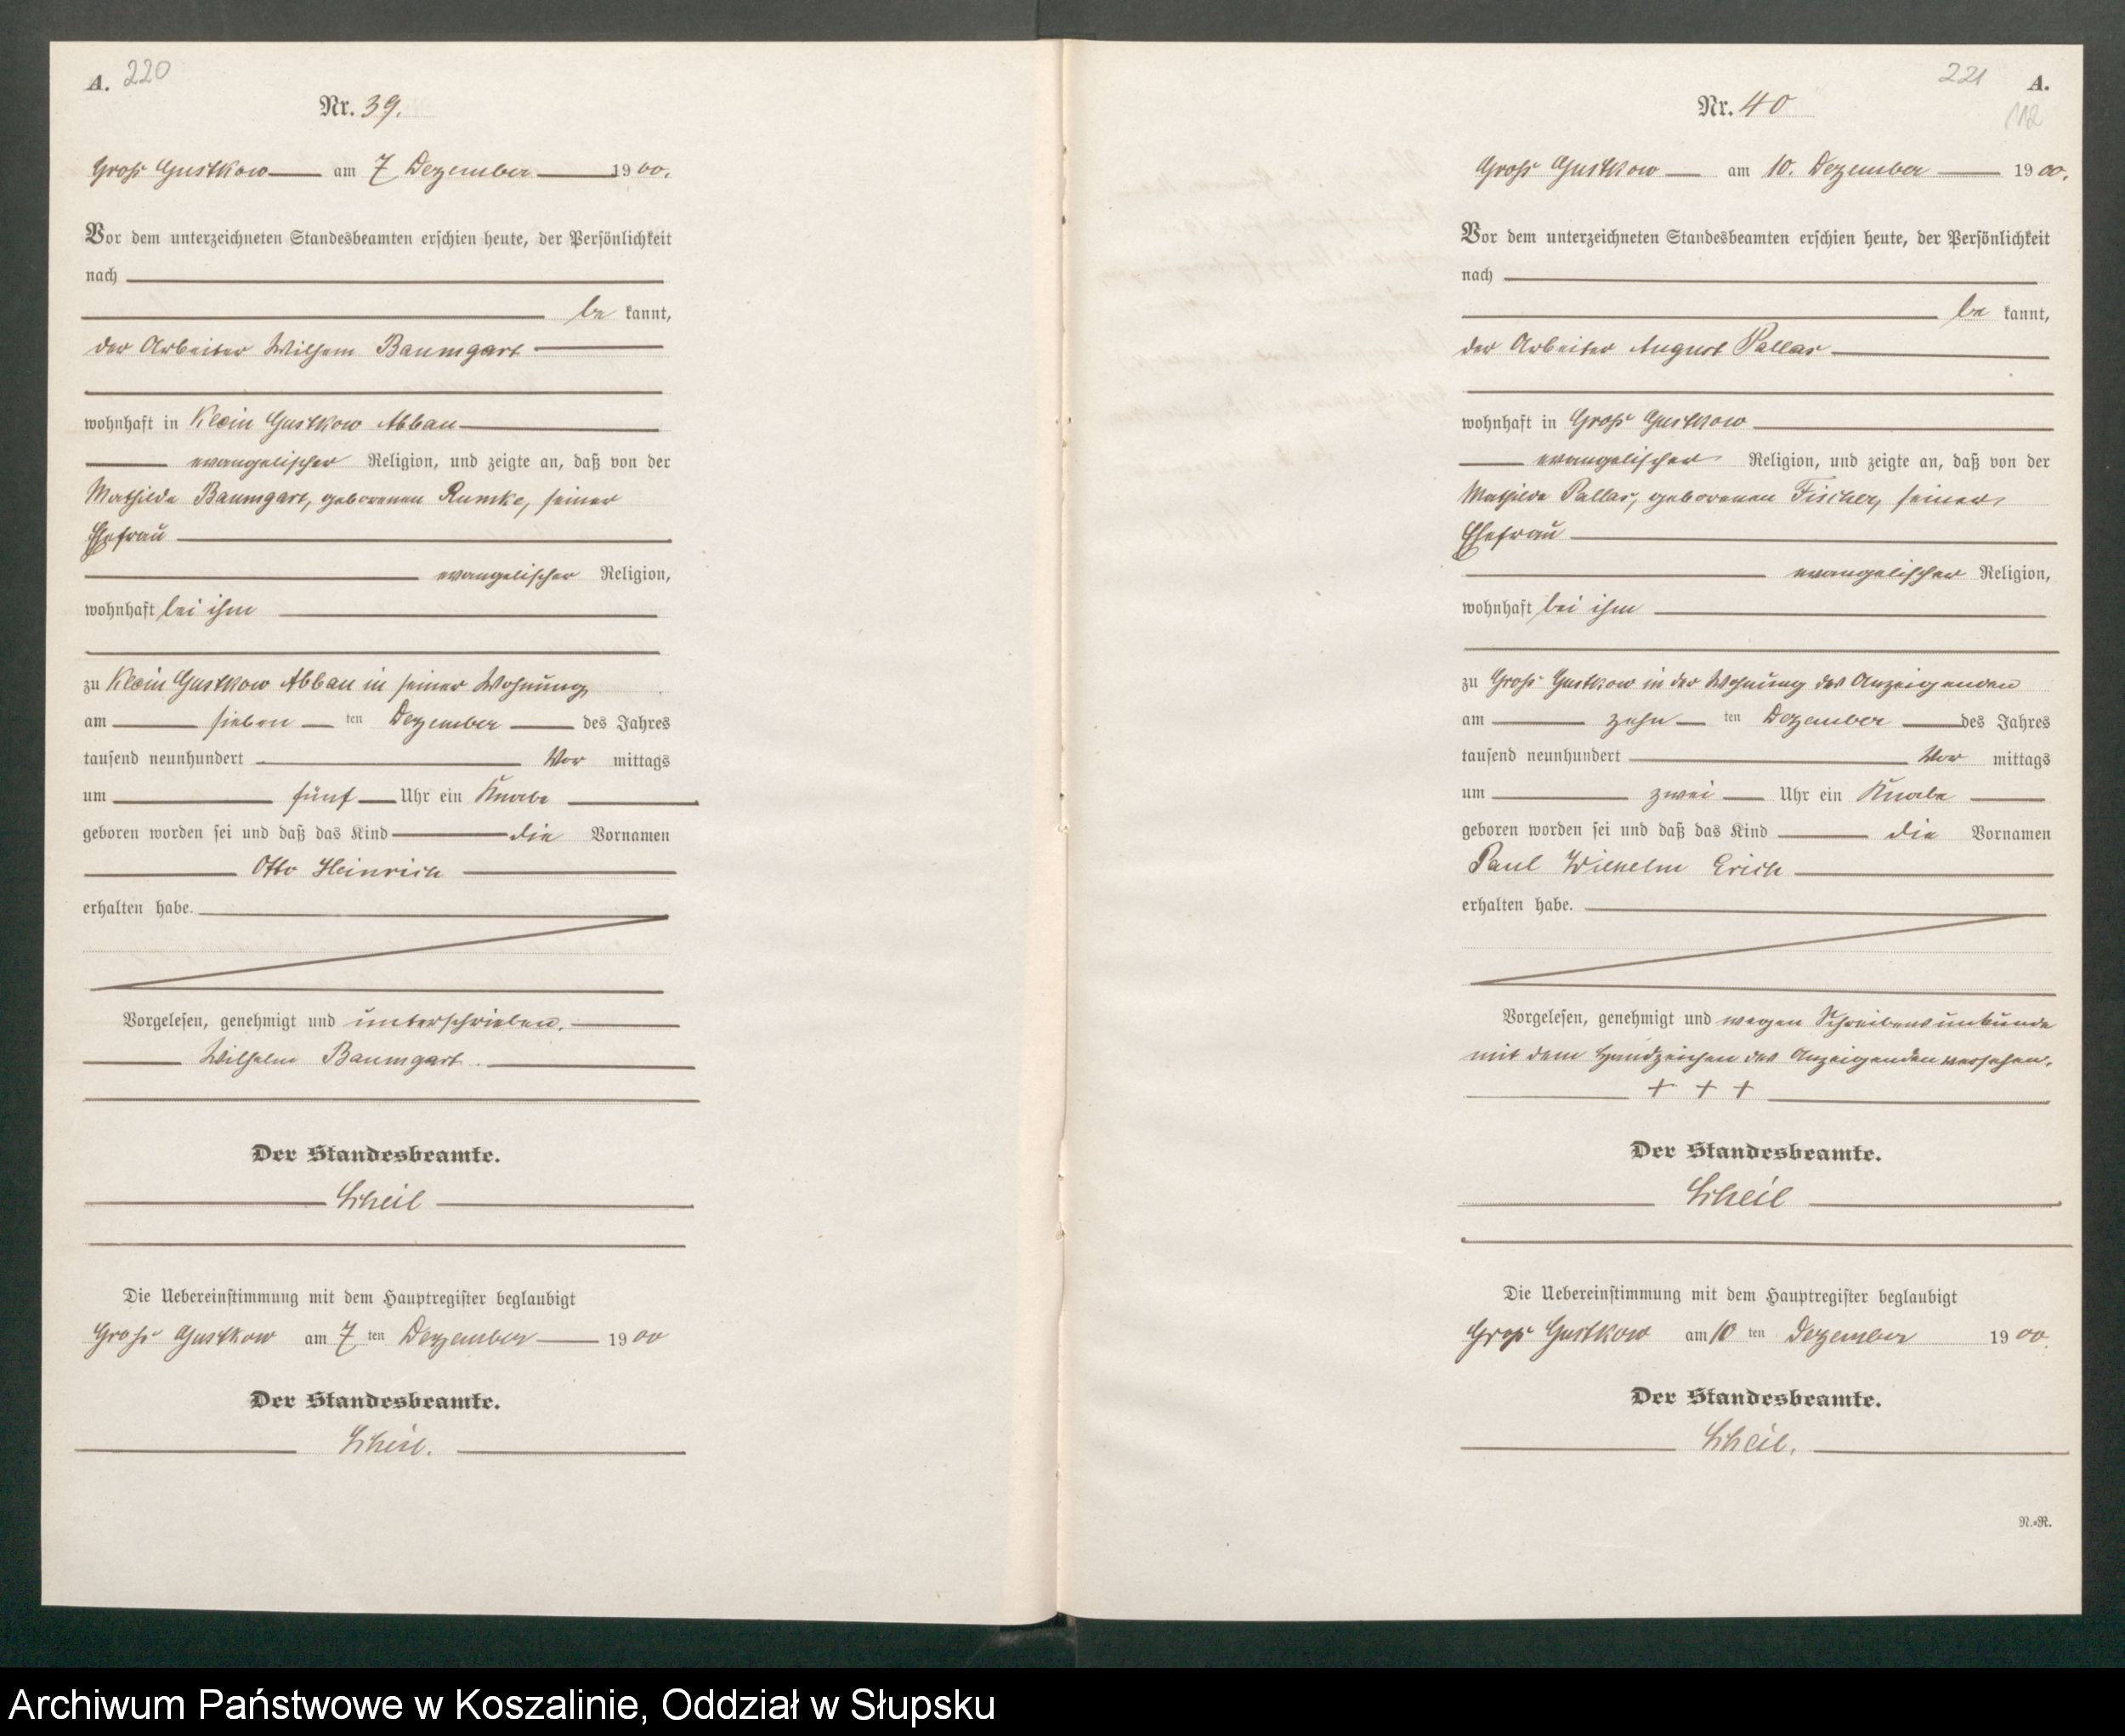 A. 220
Nr. 39.
Groß Gustkow am 7 Dezember 1900.
Vor dem unterzeichneten Standesbeamten erschien heute, der Persönlichkeit
nach
be kannt,
der Arbeiter Wilhelm Baumgart
wohnhaft in Klein Gustkow Abbau
evangelischer Religion, und zeigte an, daß von der
Mathilde Baumgart, geborenen Rumke, seiner
Ehefrau
evangelischer Religion,
wohnhaft bei ihm
zu Klein Gustkow Abbau in seiner Wohnung
am sieben ten Dezember des Jahres
tausend neunhundert Vor mittags
um fünf Uhr ein Knabe
geboren worden sei und daß das Kind die Vornamen
Otto Heinrich
erhalten habe.
Vorgelesen, genehmigt und unterschrieben.
Wilhelm Baumgart.
Der Standesbeamte.
Scheil
Die Uebereinstimmung mit dem Hauptregister beglaubigt
Groß Gustkow am 7 ten Dezember 1900
Der Standesbeamte.
Scheil.
221 A.
112
Nr. 40
Groß Gustkow am 10. Dezember 1900.
Vor dem unterzeichneten Standesbeamten erschien heute, der Persönlichkeit
nach
be kannt,
der Arbeiter August Pallas
wohnhaft in Groß Gustkow
evangelischer Religion, und zeigte an, daß von der
Mathilde Pallas, geborenen Fischer, seiner
Ehefrau
evangelischer Religion,
wohnhaft bei ihm
zu Groß Gustkow in der Wohnung des Anzeigenden
am zehn ten Dezember des Jahres
tausend neunhundert Vor mittags
um zwei Uhr ein Knabe
geboren worden sei und daß das Kind die Vornamen
Paul Wilhelm Erich
erhalten habe.
Vorgelesen, genehmigt und wegen Schreibensunkunde
mit dem Handzeichen des Anzeigenden versehen.
+ + +
Der Standesbeamte.
Scheil
Die Uebereinstimmung mit dem Hauptregister beglaubigt
Groß Gustkow am 10 ten Dezember 1900.
Der Standesbeamte.
Scheil.
N.-R.
Archiwum Państwowe w Koszalinie, Oddział w Słupsku